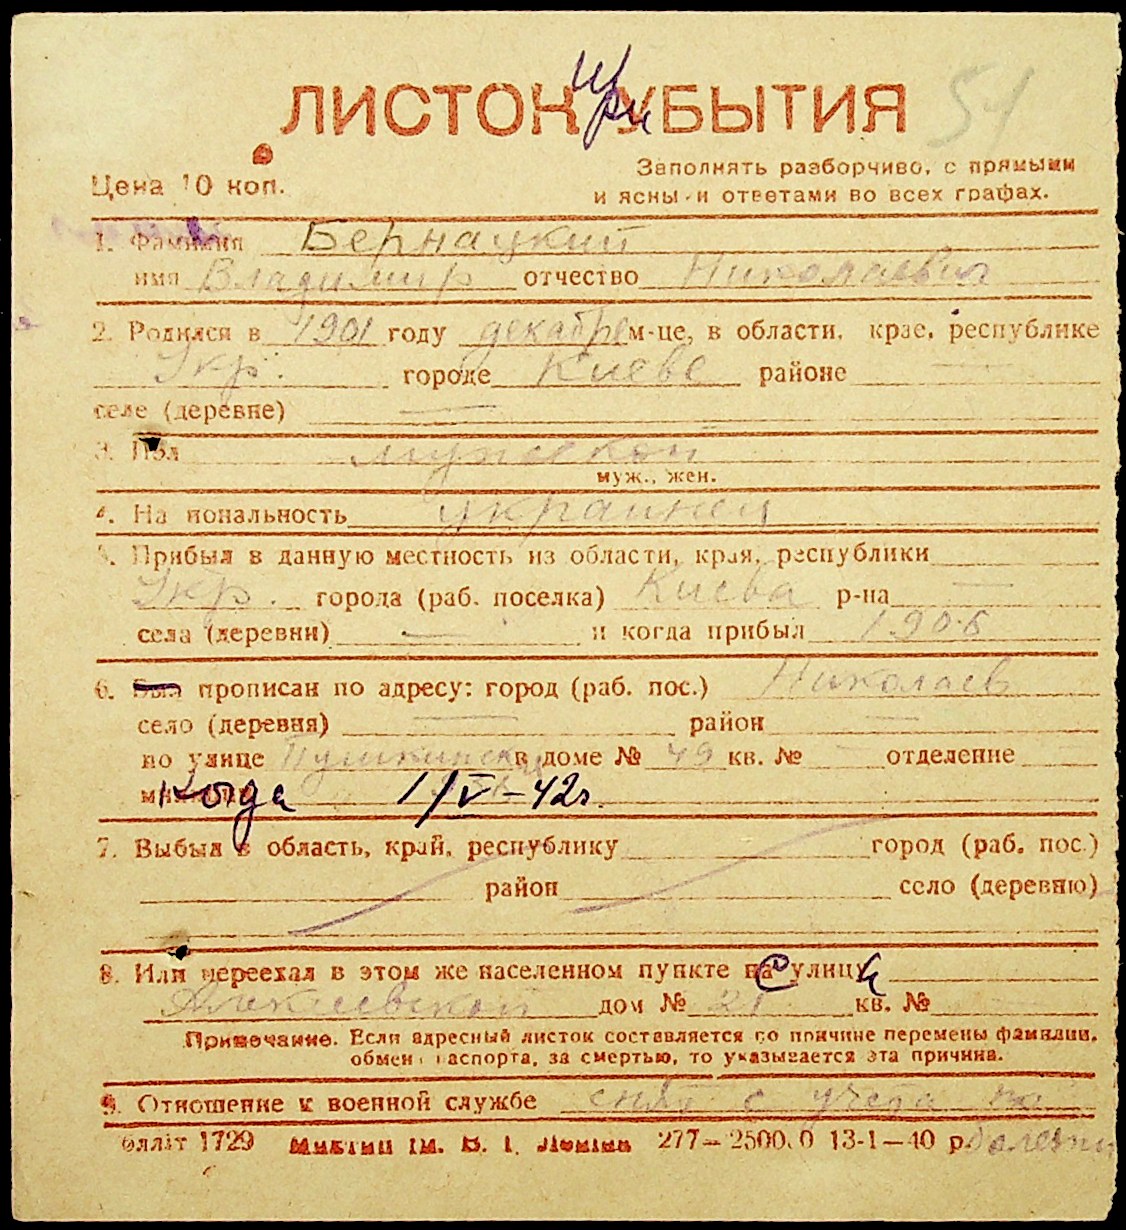 ЛИСТОК УБЫТИЯ
при
54
Цена 10 коп.
Заполнять разборчиво, с прямыми
и ясными ответами во всех графах.
1. Фамилия Бернацкий
имя Владимир отчество Николаевич
2. Родился в 1901 году декабре м-це, в области, крае, республике
Укр. городе Киеве районе —
селе (деревне) —
3. Пол мужской
муж., жен.
4. Национальность украинец
5. Прибыл в данную местность из области, края, республики
Укр. города (раб. поселка) Киева р-на —
села (деревни) — и когда прибыл 1906
6. Был прописан по адресу: город (раб. пос.) Николаев
село (деревня) — район —
по улице Пушкинская в доме № 49 кв. № — отделение
когда 1/V-42г.
7. Выбыл в область, край, республику город (раб. пос.)
район село (деревню)
8. Или переехал в этом же населенном пункте с улицы
дом № 21 кв. № —
Примечание. Если адресный листок составляется по причине перемены фамилии,
обмен паспорта, за смертью, то указывается эта причина.
9. Отношение к военной службе снят с учета по
болезни
Облліт 1729 277—25000 13-1—40 р.